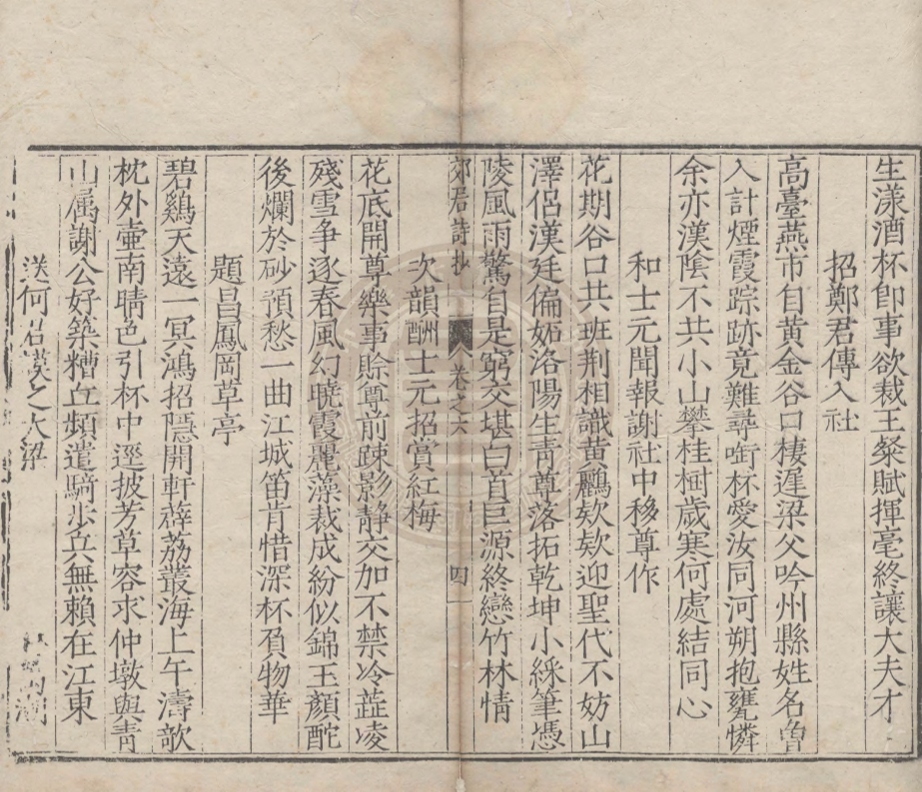 生漾酒杯卽事欲裁王粲賦揮毫終讓大夫才
招鄭君傳入社
高臺燕市自黃金谷口棲遲梁父吟州縣姓名曾
入計煙霞踪跡竟難尋啣杯愛汝同河朔抱甕憐
余亦漢陰不共小山攀桂樹歲寒何處結同心
和士元聞報謝社中移尊作
花期谷口共班荆相識黃鸝欵欵迎聖代不妨山
澤侶漢廷偏妬洛陽生靑尊落拓乾坤小綵筆憑
陵風雨驚自是窮交堪白首巨源終戀竹林情
郊居詩抄 卷之六 四
次韻酬士元招賞紅梅
花底開尊樂事賖尊前疎影靜交加不禁冷蕋凌
殘雪争逐春風幻曉霞麗藻裁成紛似錦玉顏酡
後爛於砂預愁一曲江城笛肯惜深杯負物華
題昌鳳岡草亭
碧鷄天遠一冥鴻招隱開軒薜荔叢海上午濤歌
枕外壷南晴色引杯中逕披芳草容求仲墩與靑
山屬謝公好築糟丘頻遣騎步兵無賴在江東
送何君漢之大梁